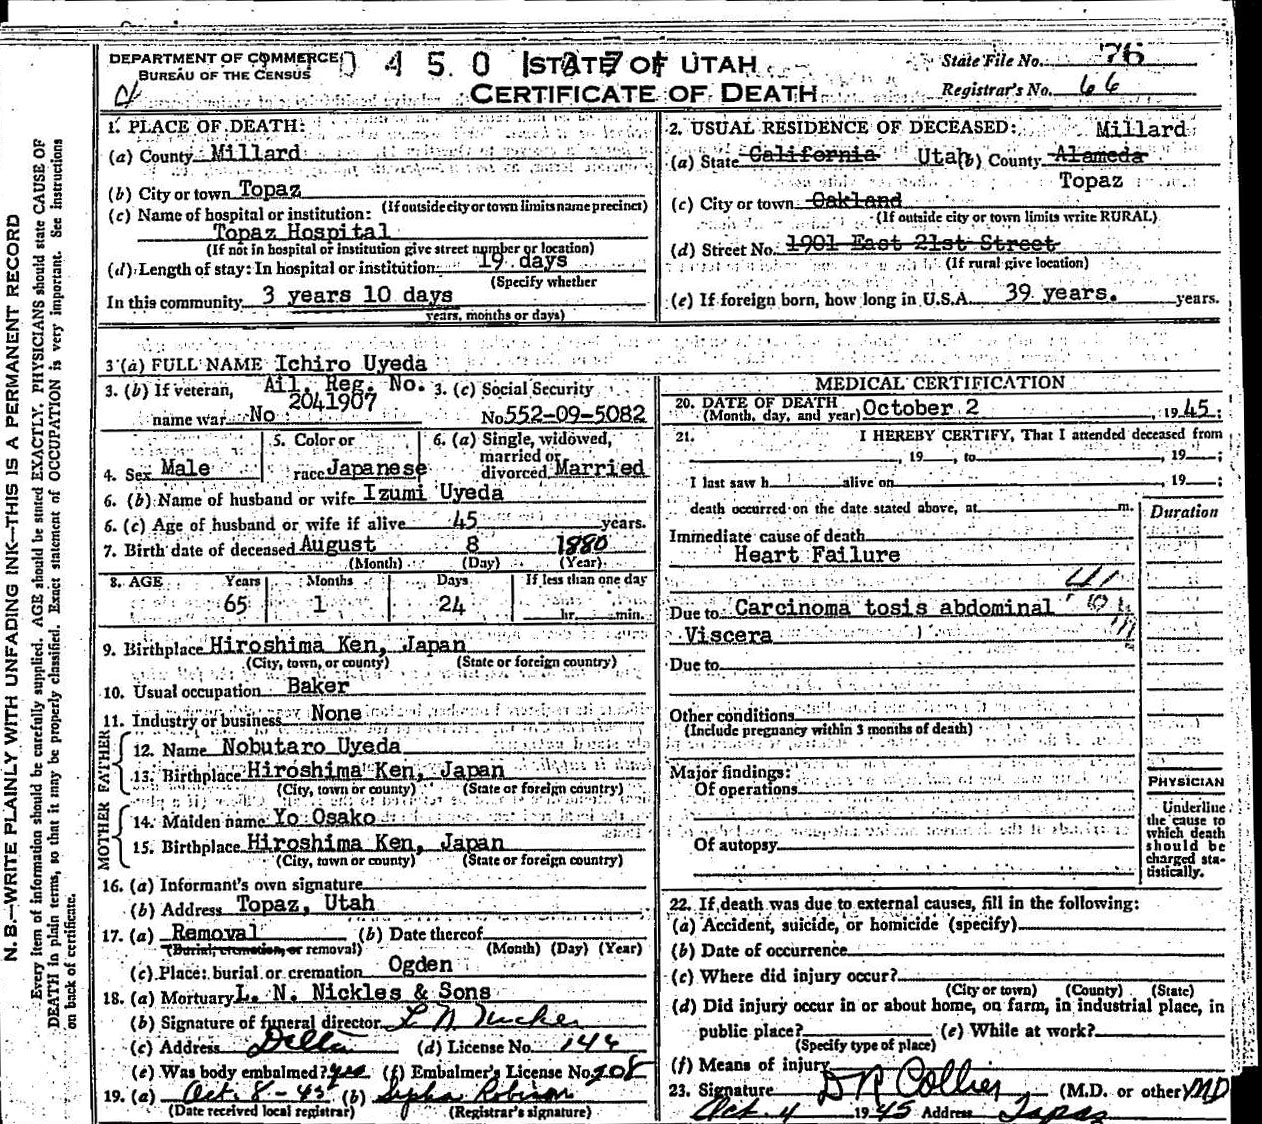 DEPARTMENT OF COMMERCE
BUREAU OF THE CENSUS
0 4 5 0
STATE OF UTAH
CERTIFICATE OF DEATH
State File No. 76
Registrar's No. 66
N.B.—WRITE PLAINLY WITH UNFADING INK—THIS IS A PERMANENT RECORD
Every item of information should be carefully supplied. AGE should be stated EXACTLY. PHYSICIANS should state CAUSE OF
DEATH in plain terms, so that it may be properly classified. Exact statement of OCCUPATION is very important. See Instructions
on back of certificate.
1. PLACE OF DEATH:
(a) County Millard
(b) City or town Topaz
(If outside city or town limits name precinct)
(c) Name of hospital or institution:
Topaz Hospital
(If not in hospital or institution give street number or location)
(d) Length of stay: In hospital or institution 19 days
(Specify whether
In this community 3 years 10 days
years, months or days)
2. USUAL RESIDENCE OF DECEASED: Millard
(a) State California Utah (b) County Alameda
Topaz
(c) City or town Oakland
(If outside city or town limits write RURAL)
(d) Street No. 1901 East 21st Street
(If rural give location)
(e) If foreign born, how long in U.S.A. 39 years. years.
3 (a) FULL NAME Ichiro Uyeda
3. (b) If veteran, Ail. Reg. No. 3. (c) Social Security
2041907
name war No No. 552-09-5082
5. Color or 6. (a) Single, widowed,
married or
4. Sex Male race Japanese divorced Married
6. (b) Name of husband or wife Izumi Uyeda
6. (c) Age of husband or wife if alive 45 years.
7. Birth date of deceased August 8 1880
(Month) (Day) (Year)
8. AGE Years Months Days If less than one day
65 1 24 hr. min.
9. Birthplace Hiroshima Ken, Japan
(City, town, or county) (State or foreign country)
10. Usual occupation Baker
11. Industry or business None
FATHER
12. Name Nobutaro Uyeda
13. Birthplace Hiroshima Ken, Japan
(City, town or county) (State or foreign country)
MOTHER
14. Maiden name Yo Osako
15. Birthplace Hiroshima Ken, Japan
(City, town or county) (State or foreign country)
16. (a) Informant's own signature
(b) Address Topaz, Utah
17. (a) Removal (b) Date thereof
(Burial, cremation, or removal) (Month) (Day) (Year)
(c) Place: burial or cremation Ogden
18. (a) Mortuary L. N. Nickles & Sons
(b) Signature of funeral director L N
(c) Address Delta (d) License No. 146
(e) Was body embalmed? yes (f) Embalmer's License No. 208
19. (a) Oct. 8-45 (b) Robison
(Date received local registrar) (Registrar's signature)
MEDICAL CERTIFICATION
20. DATE OF DEATH
(Month, day, and year) October 2 1945;
21. I HEREBY CERTIFY, That I attended deceased from
, 19 , to , 19 ;
I last saw h alive on , 19 ;
death occurred on the date stated above, at m.
Duration
Immediate cause of death
Heart Failure
Due to Carcinoma tosis abdominal
Viscera
Due to
Other conditions
(Include pregnancy within 3 months of death)
Major findings:
Of operations
Of autopsy
PHYSICIAN
Underline
the cause to
which death
should be
charged sta-
tistically.
22. If death was due to external causes, fill in the following:
(a) Accident, suicide, or homicide (specify)
(b) Date of occurrence
(c) Where did injury occur?
(City or town) (County) (State)
(d) Did injury occur in or about home, on farm, in industrial place, in
public place? (e) While at work?
(Specify type of place)
(f) Means of injury
23. Signature D R Collier (M.D. or other) MD
Oct. 4 1945 Address Topaz